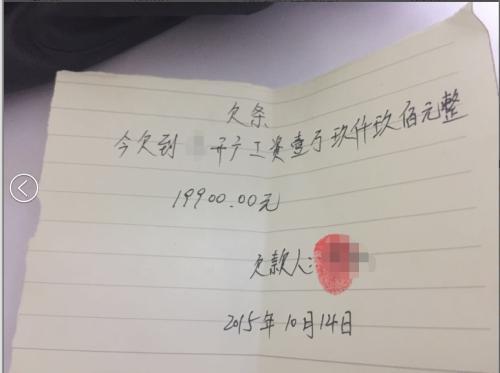 欠条
今欠到 开广工资壹万玖仟玖佰元整
19900.00元
欠款人:
2015年10月14日